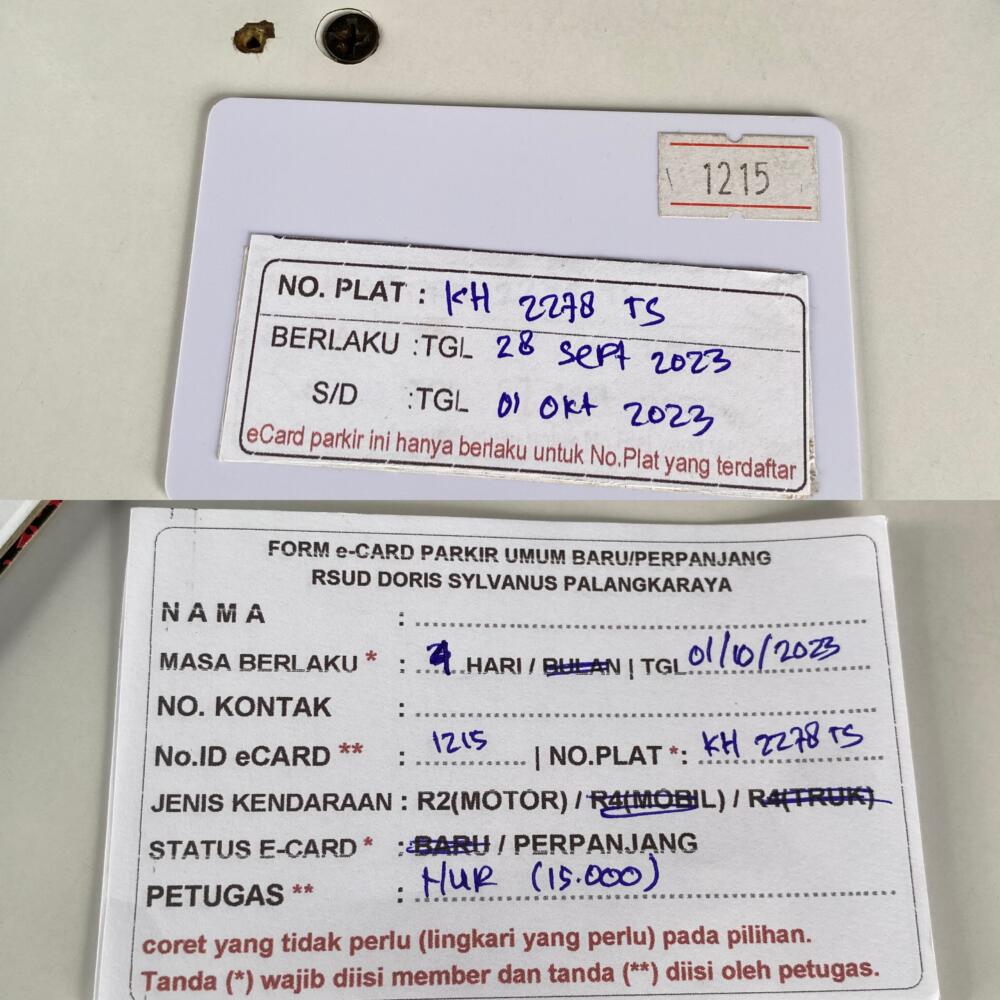 1215
NO. PLAT : KH 2278 TS
BERLAKU :TGL 28 Sept 2023
S/D :TGL 01 Okt 2023
eCard parkir ini hanya berlaku untuk No.Plat yang terdaftar
FORM e-CARD PARKIR UMUM BARU/PERPANJANG
RSUD DORIS SYLVANUS PALANGKARAYA
N A M A :
MASA BERLAKU * : 4 HARI / BULAN | TGL 01/10/2023
NO. KONTAK :
No.ID eCARD ** : 1215 | NO.PLAT *: KH 2278 TS
JENIS KENDARAAN : R2(MOTOR) / R4(MOBIL) / R4(TRUK)
STATUS E-CARD * : BARU / PERPANJANG
PETUGAS ** : NUR (15.000)
coret yang tidak perlu (lingkari yang perlu) pada pilihan.
Tanda (*) wajib diisi member dan tanda (**) diisi oleh petugas.